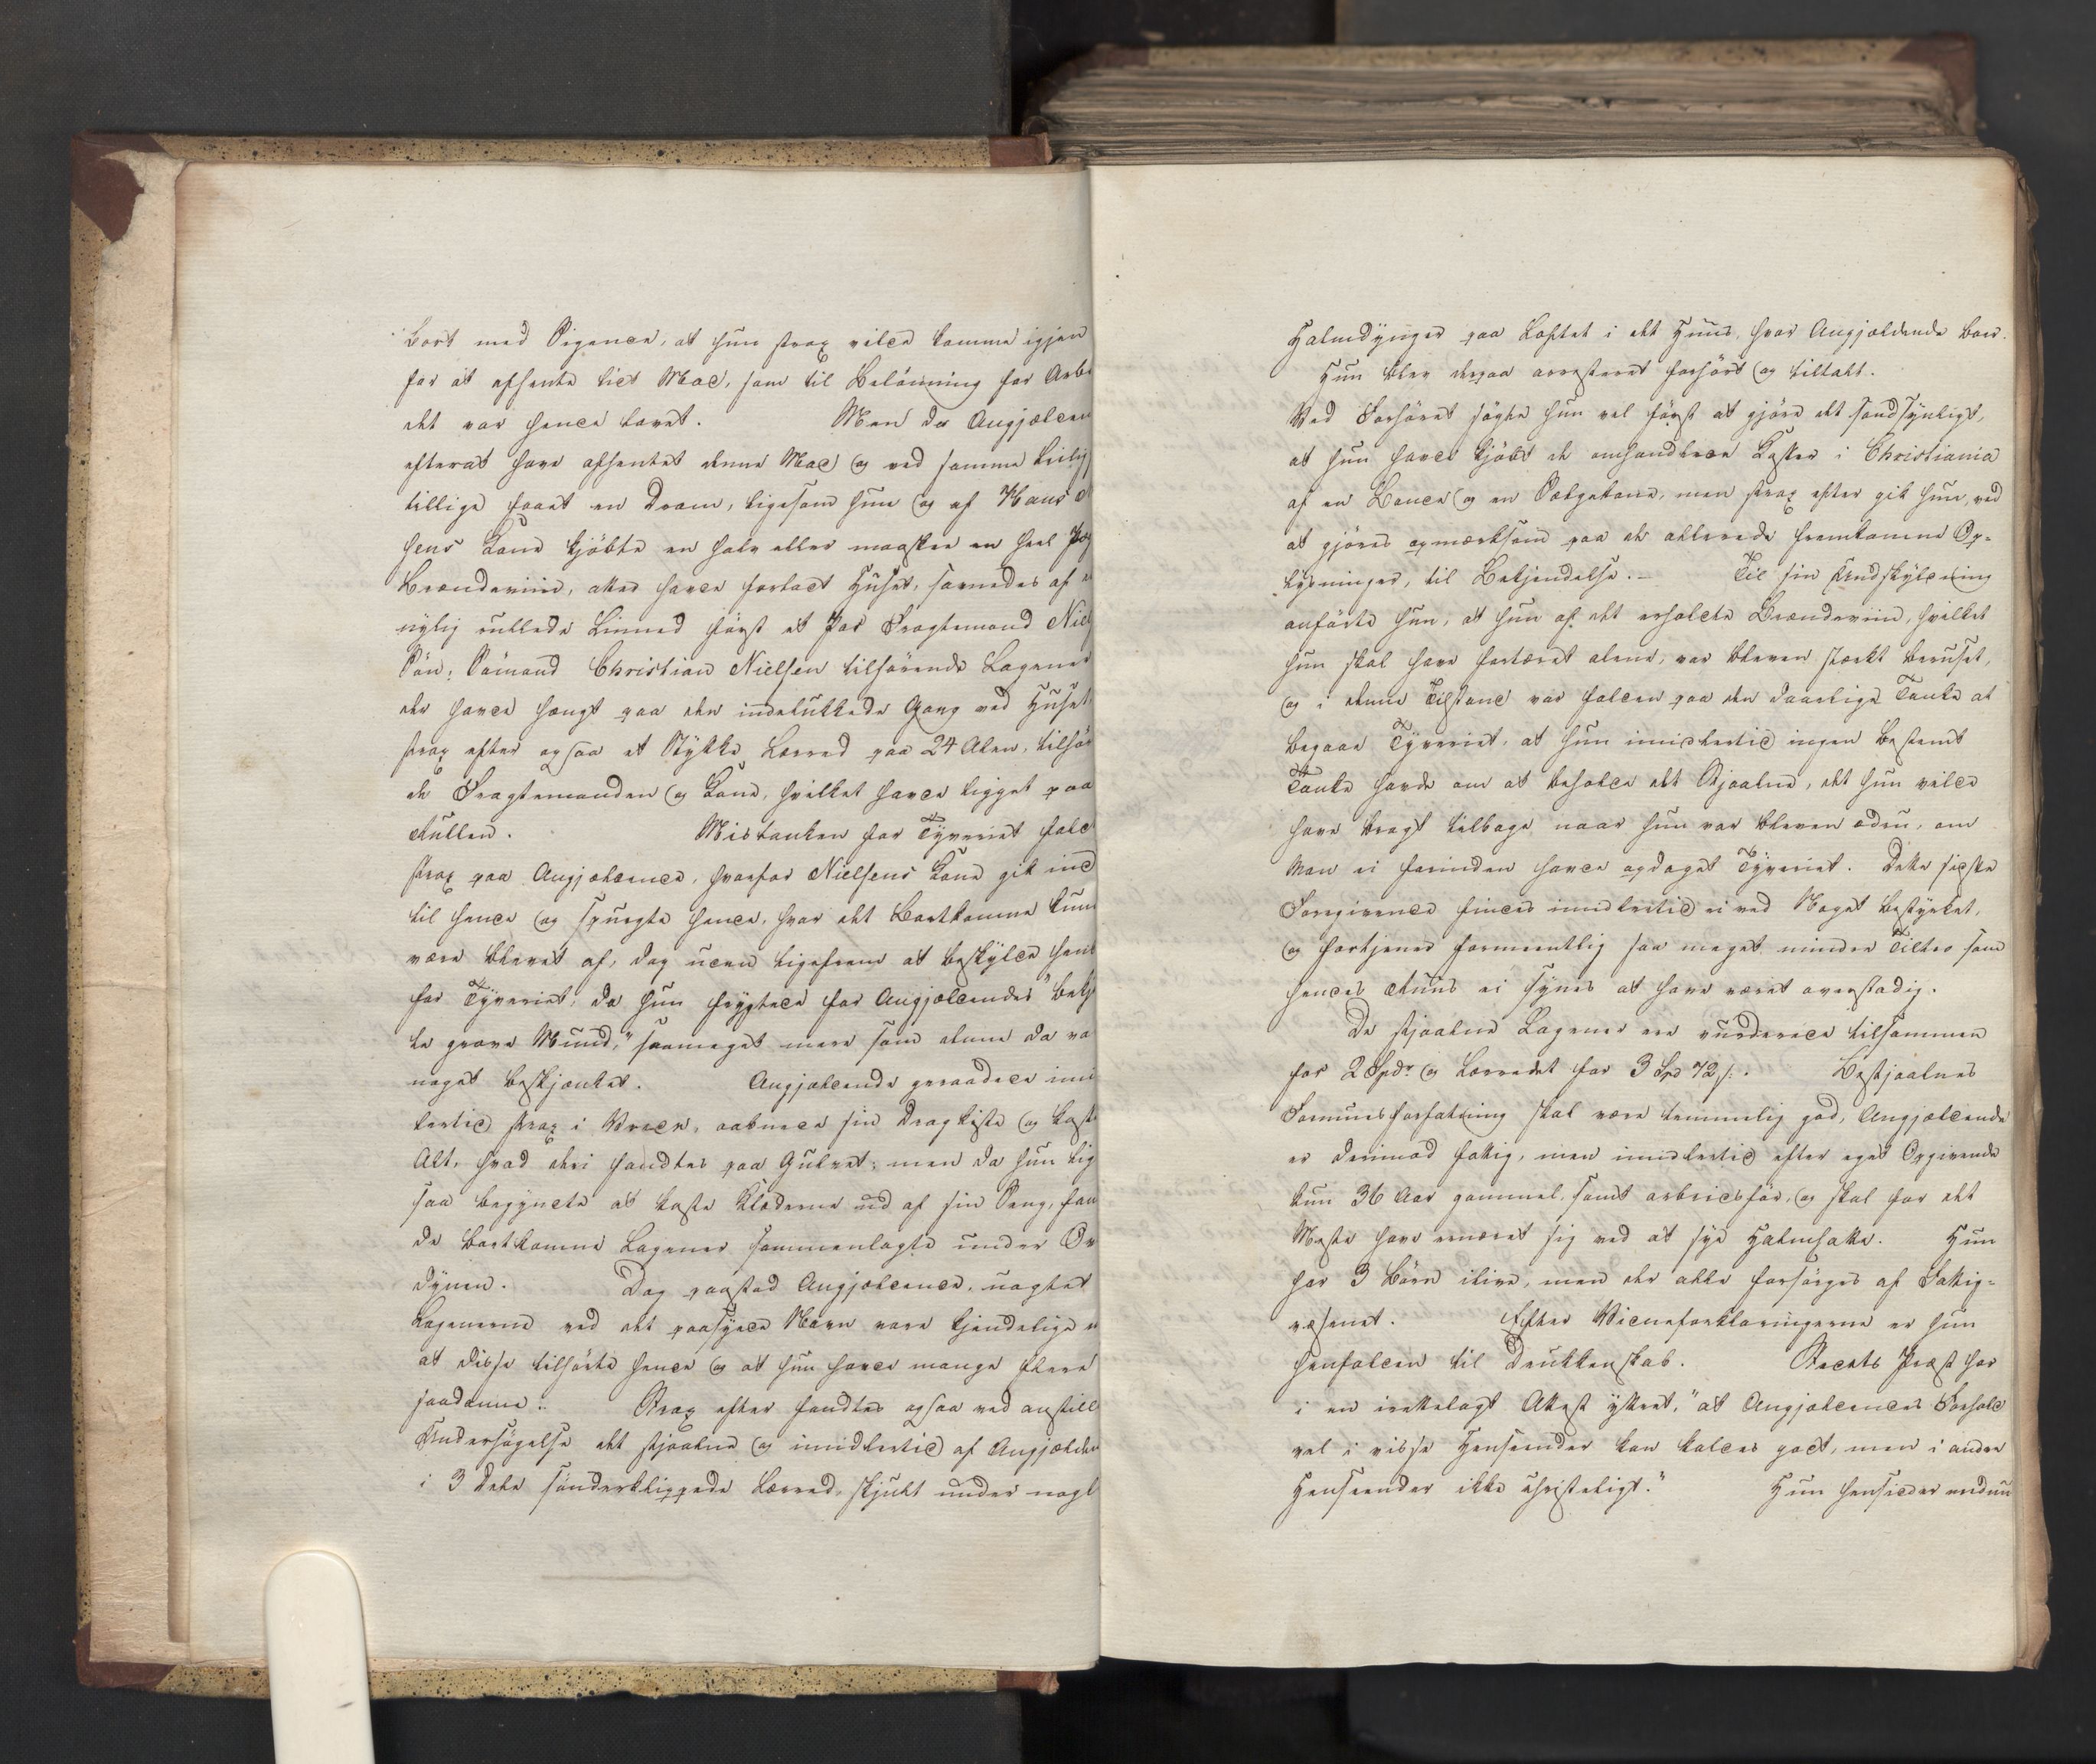 bort med Sigende, at hun strax vilde komme igjen
for at afhente lidt Mad, som til Belønning for Arbe
det var hende lovet. Men da Angjælden
efterat have afhentet denne Mad og ved samme Leilig
tillige faaet en Dram, ligesom hun og af Hans
hens Kone kjøbte en halv eller maaskee en heel Pæg
Brændeviin, atter havde forladt Huset, savnedes af
nylig rullede Linned først et Par Fragtemand Niel
Søn: Sømand Christian Nielsen tilhørende Lagener
der havde hængt paa den indelukkede Gang ved Huset,
strax efter ogsaa et Stykke Lærred paa 24 Alen, tilhør
de Fragtemanden og Kone, hvilket havde ligget paa
Rullen. Mistanken for Tyveriet faldt
strax paa Angjældende, hvorfor Nielsens Kone gik ind
til hende og spurgte hende, hvor det Bortkomne kun
være blevet af, dog uden ligefrem at beskylde hend
for Tyveriet, da hun frygtede for Angjældendes "bekj
te grove Mund," saameget mere som denne da va
noget beskjænket. Angjældende geraadede imi
lertid strax i Vrede, aabnede sin Dragkiste og kaste
Alt, hvad deri fandtes paa Gulvet; men da hun lig
saa begyndte at kaste Klæderne ud af sin Seng, fan
de bortkomne Lagener sammenlagte under Ov
dynen. Dog paastod Angjældende, uagtet
Lagenerne ved det paasyede Navn vare kjendelige
at disse tilhørte hende og at hun havde mange flere
saadanne. Strax efter fandtes ogsaa ved anstill
Undersøgelse det stjaalne og imidlertid af Angjælden
i 3 Dele sønderklippede Lærred, skjult under nogl
Halmdynger paa Loftet i det Huus, hvor Angjældende boer.
Hun blev derpaa arresteret forhørt og tiltalt.
Ved Forhøret søgte hun vel først at gjøre det sandsynligt,
at hun havde kjøbt de omhandlede Koster i Christiania
af en Bonde og en Sælgekone, men strax efter gik hun, ved
at gjøres opmærksom paa de allerede fremkomne Op-
lysninger, til Bekjendelse. – Til sin Undskyldning
anførte hun, at hun af det erholdte Brændeviin, hvilket
hun skal have fortæret alene, var bleven stærkt beruset,
og i denne Tilstand var falden paa den daarlige Tanke at
begaae Tyveriet, at hun imidlertid ingen bestemt
Tanke havde om at beholde det Stjaalne, det hun vilde
have bragt tilbage naar hun var bleven ædru, om
man ei forinden havde opdaget Tyveriet. Dette sidste
Foregivende findes imidlertid ei ved Noget bestyrket,
og fortjener formeentlig saa meget mindre Tiltro som
hendes Ruus ei synes at have været overstadig.
De stjaalne Lagener ere vurderede tilsammen
for 2 Spdr og Lærredet for 3 Spd 72 s:. Bestjaalnes
Formuesforfatning skal være temmelig god, Angjældende
er derimod fattig, men imidlertid efter eget Opgivende
kun 36 Aar gammel, samt arbeidsfør, og skal for det
Meste have ernæret sig ved at sye Halmhatte. Hun
har 3 Børn ilive, men der alle forsørges af Fattig-
væsenet. Efter Vidneforklaringerne er hun
henfalden til Drukkenskab. Stedets Præst har
i en irettelagt Attest yttret, "at Angjældendes Forhold
vel i visse Henseender kan kaldes godt, men i andre
Henseender ikke christeligt." Hun hensidder endnu